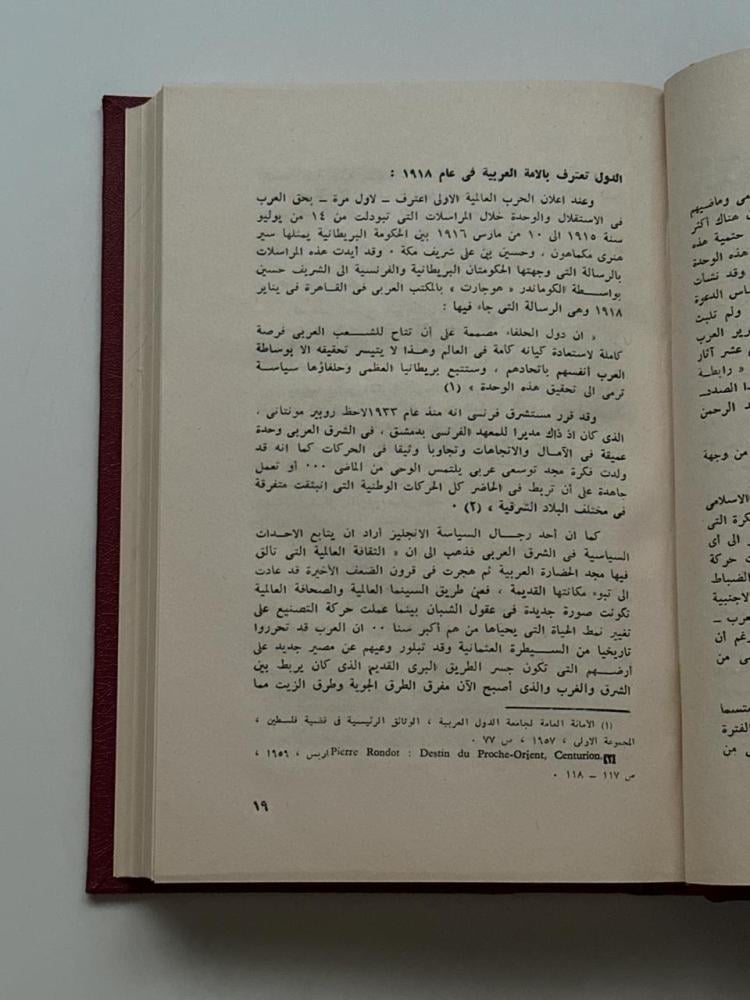 الدول تعترف بالامة العربية فى عام ١٩١٨ :
وعند إعلان الحرب العالمية الاولى اعترف ــ لاول مرة ــ بحق العرب
فى الاستقلال والوحدة خلال المراسلات التى تبودلت من ١٤ من يوليو
سنة ١٩١٥ الى ١٠ من مارس ١٩١٦ بين الحكومة البريطانية يمثلها سير
هنرى مكماهون ، وحسين بن على شريف مكة ٠ وقد أيدت هذه المراسلات
بالرسالة التى وجهتها الحكومتان البريطانية والفرنسية الى الشريف حسين
بواسطة الكوماندر « هوجارت » بالمكتب العربى فى القاهرة فى يناير
١٩١٨ وهى الرسالة التى جاء فيها :
« ان دول الحلفاء مصممة على أن تتاح للشعب العربى فرصة
كاملة لاستعادة كيانه كامة فى العالم وهذا لا يتيسر تحقيقه الا بوساطة
العرب أنفسهم باتحادهم ، وستتبع بريطانيا العظمى وحلفاؤها سياسة
ترمى الى تحقيق هذه الوحدة » (١)
وقد قرر مستشرق فرنسى انه منذ عام ١٩٣٣لاحظ روبير مونتانى ،
الذى كان اذ ذاك مديرا للمعهد الفرنسى بدمشق ، فى الشرق العربى وحدة
عميقة فى الآمال والاتجاهات وتجاوبا وثيقا فى الحركات كما انه قد
ولدت فكرة مجد توسعى عربى يلتمس الوحى من الماضى ٠٠٠ أو تعمل
جاهدة على أن تربط فى الحاضر كل الحركات الوطنية التى انبثقت متفرقة
فى مختلف البلاد الشرقية » (٢) ٠
كما ان أحد رجال السياسة الانجليز أراد ان يتابع الاحداث
السياسية فى الشرق العربى فذهب الى ان « الثقافة العالمية التى تألق
فيها مجد الحضارة العربية ثم هجرت فى قرون الضعف الأخيرة قد عادت
الى تبوء مكانتها القديمة ، فعن طريق السينما العالمية والصحافة العالمية
تكونت صورة جديدة فى عقول الشبان بينما عملت حركة التصنيع على
تغيير نمط الحياة التى يحياها من هم أكبر سنا ٠٠ ان العرب قد تحرروا
تاريخيا من السيطرة العثمانية وقد تبلور وعيهم عن مصير جديد على
أرضهم التى تكون جسر الطريق البرى القديم الذى كان يربط بين
الشرق والغرب والذى أصبح الآن مفرق الطرق الجوية وطرق الزيت مما
(١) الأمانة العامة لجامعة الدول العربية ، الوثائق الرئيسية فى قضية فلسطين ،
المجموعة الاولى ، ١٩٥٧ ، ص ٧٧ ٠
(٢) Pierre Rondot : Destin du Proche-Orient, Centurion. اريس ، ١٩٥٩ ،
ص ١١٧ ــ ١١٨ ٠
١٩
ى وماضيهم
هناك أكثر
حتمية هذه
هذه الوحدة
وقد نشأت
اس الدعوة
ولم تلبث
رير العرب
عشر آثار
« رابطة
ا الصدد
د الرحمن
من وجهة
الاسلامى
كرة التى
الى أى
حركة
الضباط
لاجنبية
لعرب ــ
رغم أن
ى من
متسما
الفترة
من